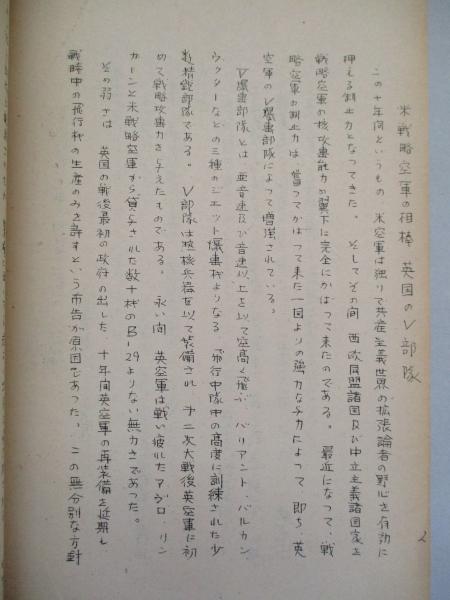 米戦略空軍の相棒 英国のV部隊
2
この十年間というもの 米空軍は独りで共産主義世界の拡張論者の野心を有効に
押える制止力となってきた。そしてその間 西欧同盟諸国及び中立主義諸国家を
戦略空軍の核攻撃能力の翼下に完全にかばって来たのである。最近になって、戦
略空軍の制止力は、嘗つてかばって来た一国よりの強力な手力によって 即ち、英
空軍のV爆撃部隊によって増強されている。
V爆撃部隊とは 亜音速及び音速以上を以て空高く飛ぶ バリアント、バルカン
ヴクターなどの三種のジェット爆撃機よりなる 飛行中隊中の高度に訓練された少
数精鋭部隊である。V部隊は核兵器を以て装備され 才二次大戦後英空軍に初
めて戦略攻撃力を与えたものである。永い間 英空軍は戦い疲れたアヴロ、リン
カーンと米戦略空軍から貸与された数十機のB-29よりない無力さであった。
その弱さは 英国の戦後最初の政府の出した 十年間英空軍の再装備を延期し
戦時中の飛行機の生産のみを許すという布告が原因であった。この無分別な方針